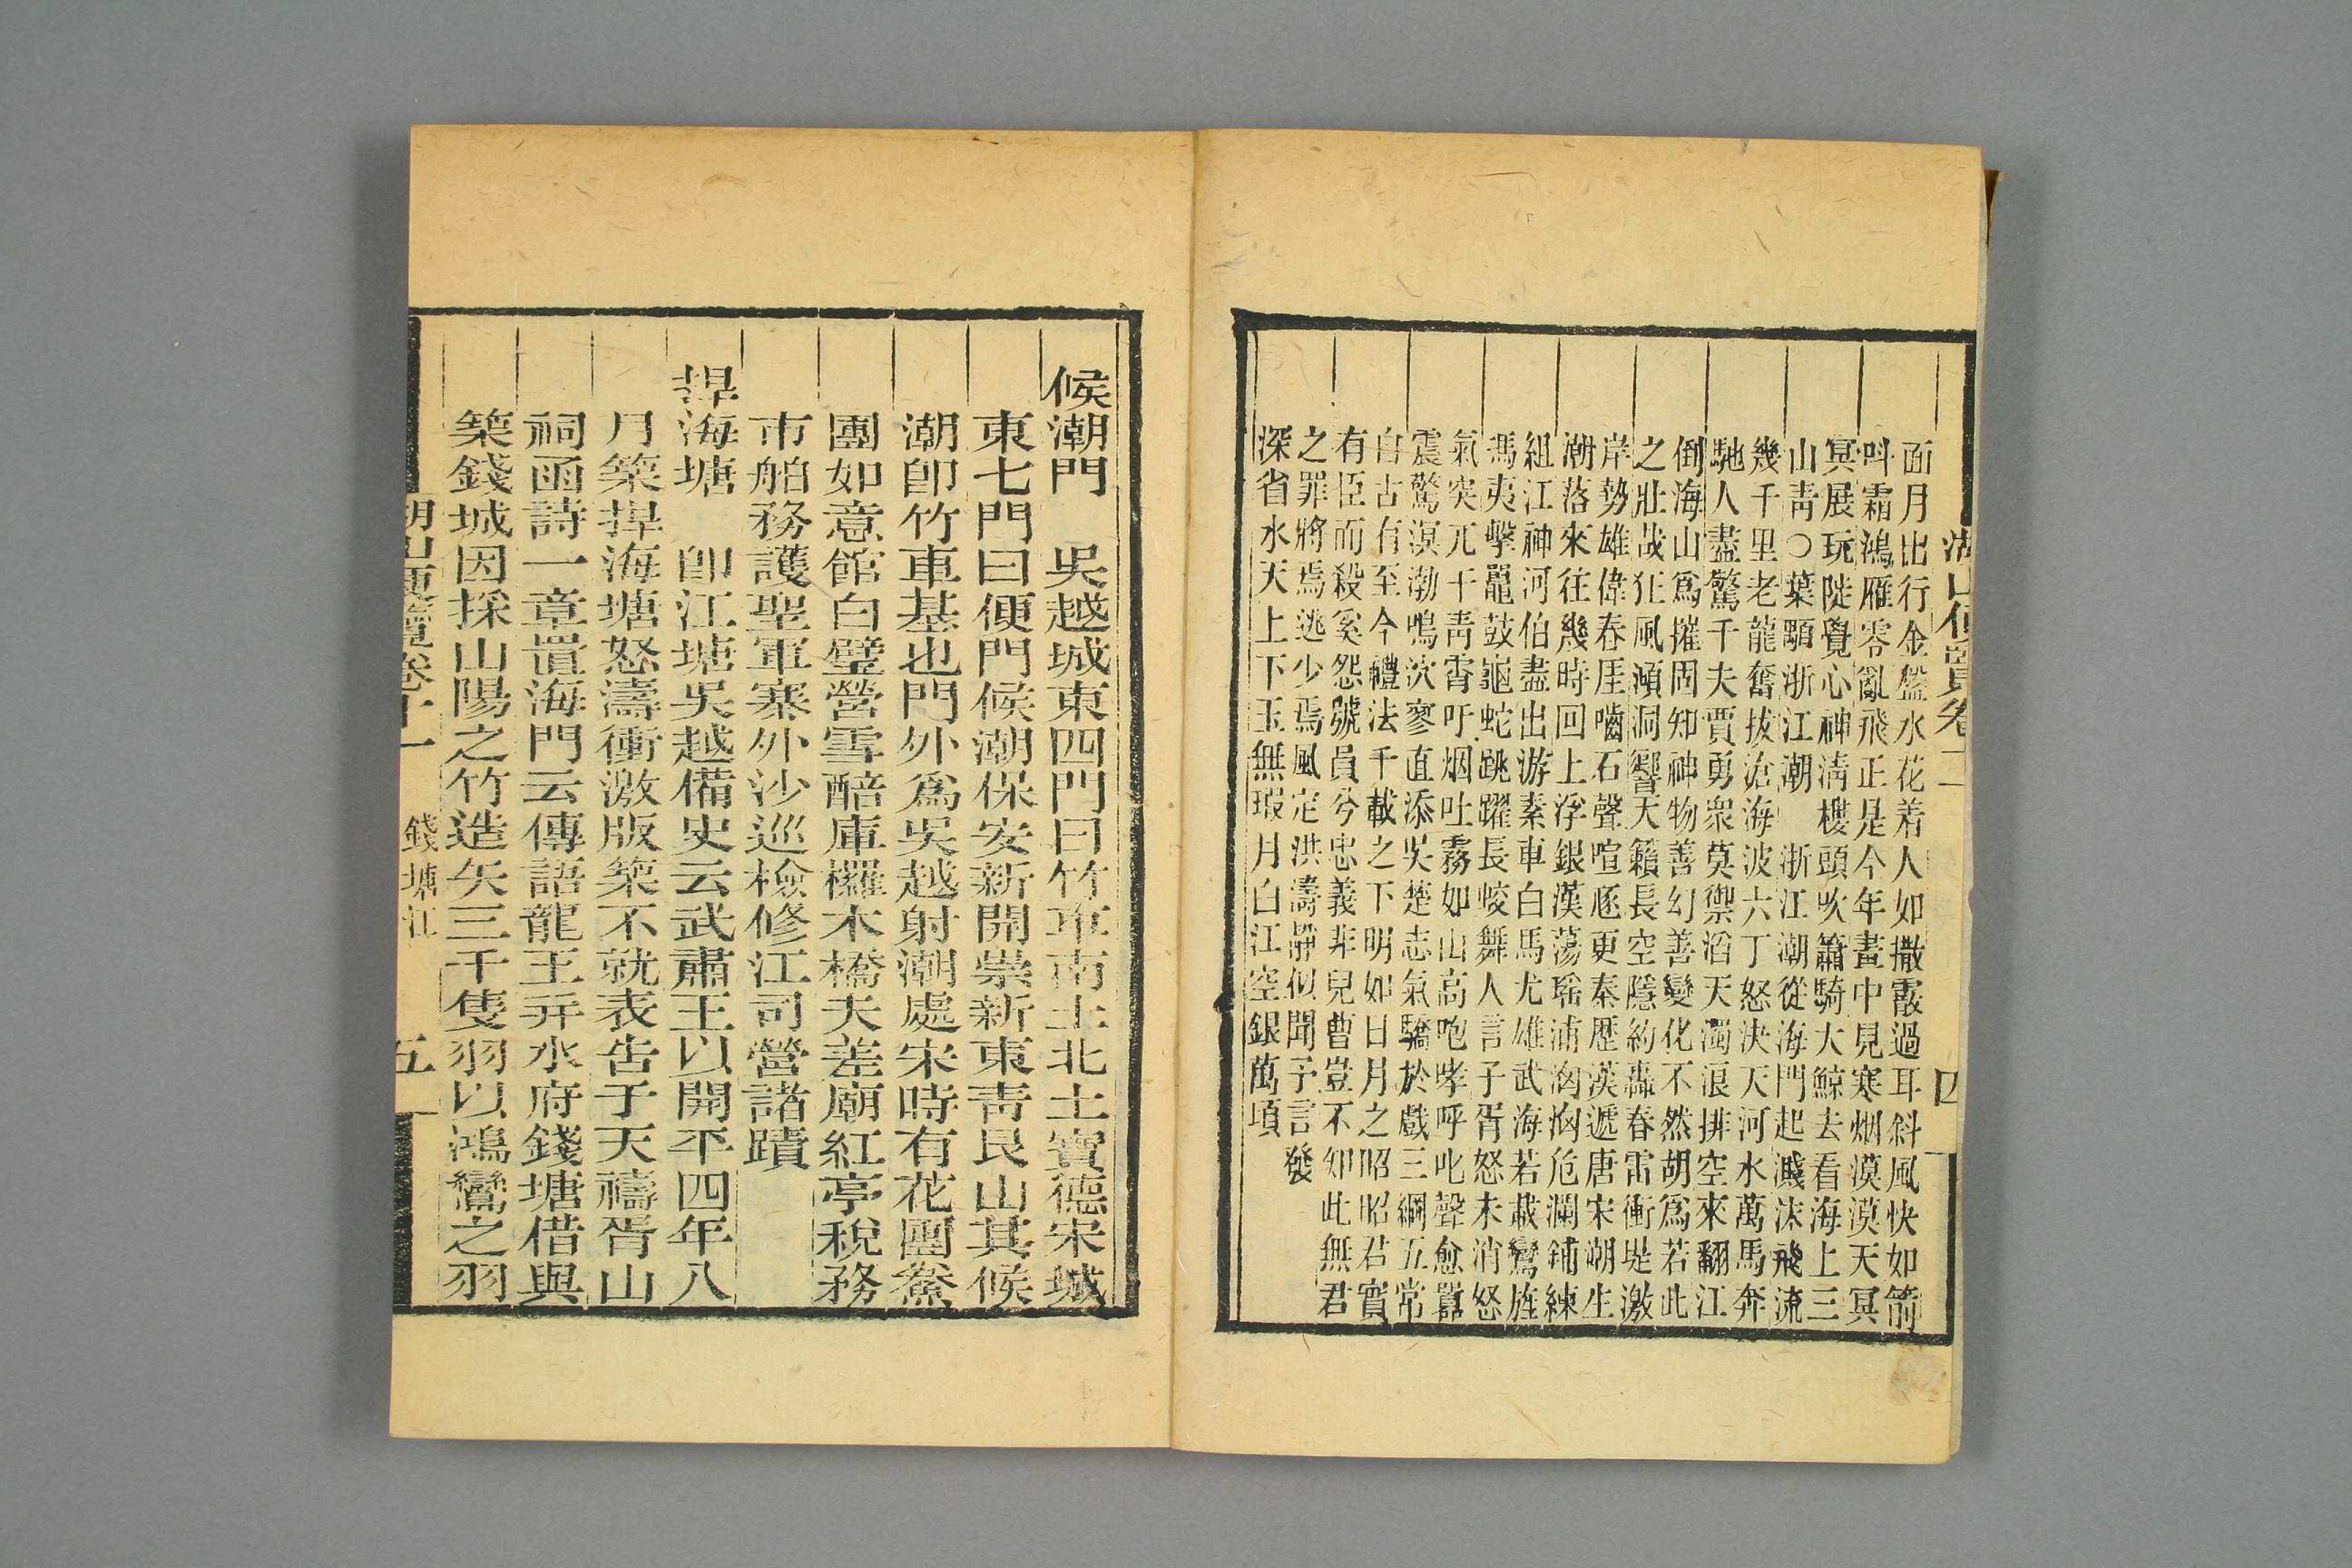 湖山便覽卷十一 四
面月比行金盤水花着人如撒霰過耳斜風快如箭
呌霜鴻雁零亂飛正是今年畫中見寒烟漠漠天冥
冥展玩陡覺心神淸樓頭吹簫騎大鯨去看海上三
山靑○葉顒浙江潮 浙江潮從海門起濺沫飛流
幾千里老龍奮拔滄海波六丁怒決天河水萬馬奔
馳人盡驚千夫賈勇衆莫禦滔天濁浪排空來翻江
倒海山爲摧固知神物善幻善變化不然胡爲若此
之壯哉狂風澒洞響天籟長空隱約轟春雷衝堤激
岸勢雄偉舂厓嚙石聲喧豗更秦歷漢遞唐宋潮生
潮落來往幾時回上浮銀漢蕩瑤浦洶洶危瀾鋪練
組江神河伯盡出游素車白馬尤雄武海若載鸞旌
馮夷擊鼉鼓龜蛇跳躍長蛟舞人言子胥怒未消怒
氣突兀干靑霄吁烟吐霧如山高咆哮呼叱聲愈囂
震驚溟渤鳴泬寥直添吳楚志氣驕於戲三綱五常
自古有至今禮法千載之下明如日月之昭昭君實
有臣而殺奚怨號員兮忠義非兒曹豈不知此無君
之罪將焉逃少焉風定洪濤靜似聞予言發
深省水天上下玉無瑕月白江空銀萬頃
候潮門 吳越城東四門曰竹車南土北土寶德宋城
東七門曰便門候潮保安新開崇新東靑艮山其候
潮卽竹車基也門外爲吳越射潮處宋時有花團鯗
團如意館白璧營雪醅庫欏木橋夫差廟紅亭稅務
市舶務護聖軍寨外沙巡檢修江司營諸蹟
捍海塘 卽江塘吳越備史云武肅王以開平四年八
月築捍海塘怒濤衝激版築不就表告于天禱胥山
祠函詩一章置海門云傳語龍王幷水府錢塘借與
築錢城因採山陽之竹造矢三千隻羽以鴻鷺之羽
湖山便覽卷十一 錢塘江 五